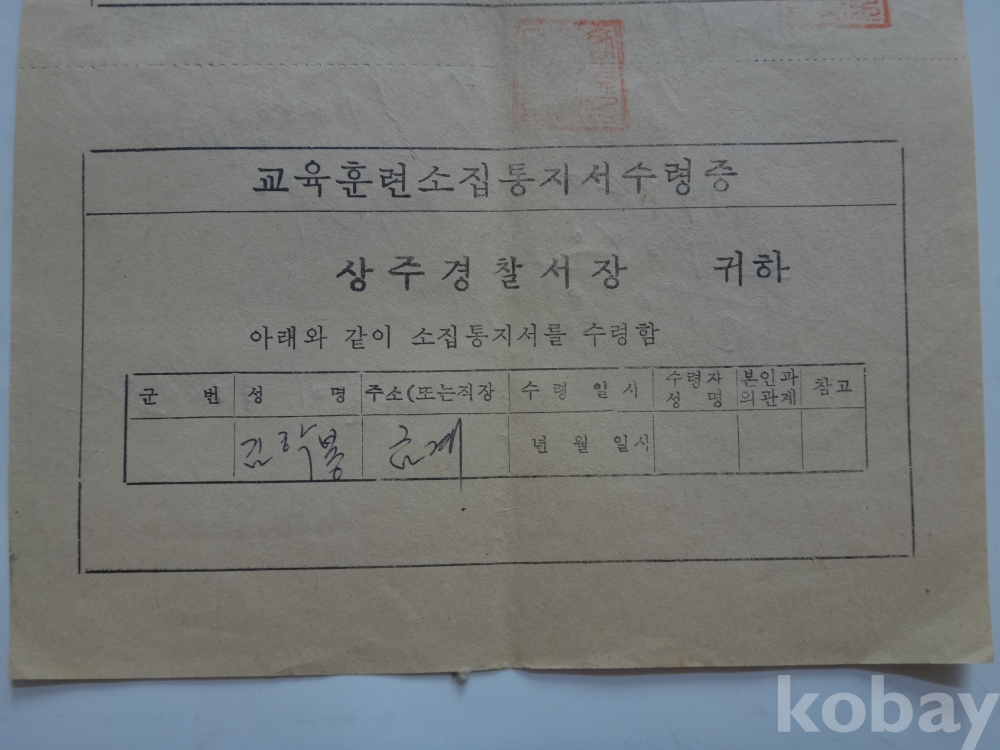 교육훈련소집통지서수령증
상주경찰서장 귀하
아래와 같이 소집통지서를 수령함
군 번 성 명 주소(또는직장 수 령 일 시 수령자 성 명 본인과의관계 참고
김학봉 금계 년 월 일시
kobay